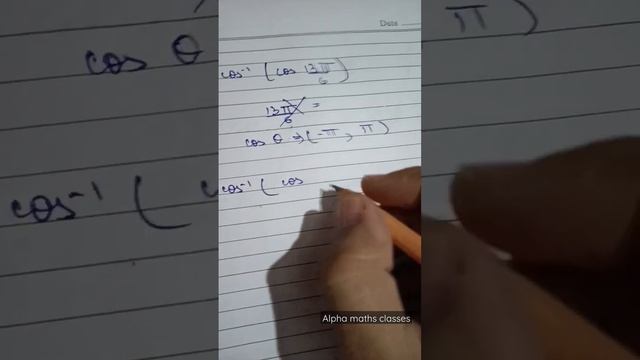 Date
cos⁻¹ (cos 13π/6)
13π/6 =
cos θ ⇒ (-π, π)
cos⁻¹ ( cos
Alpha maths classes